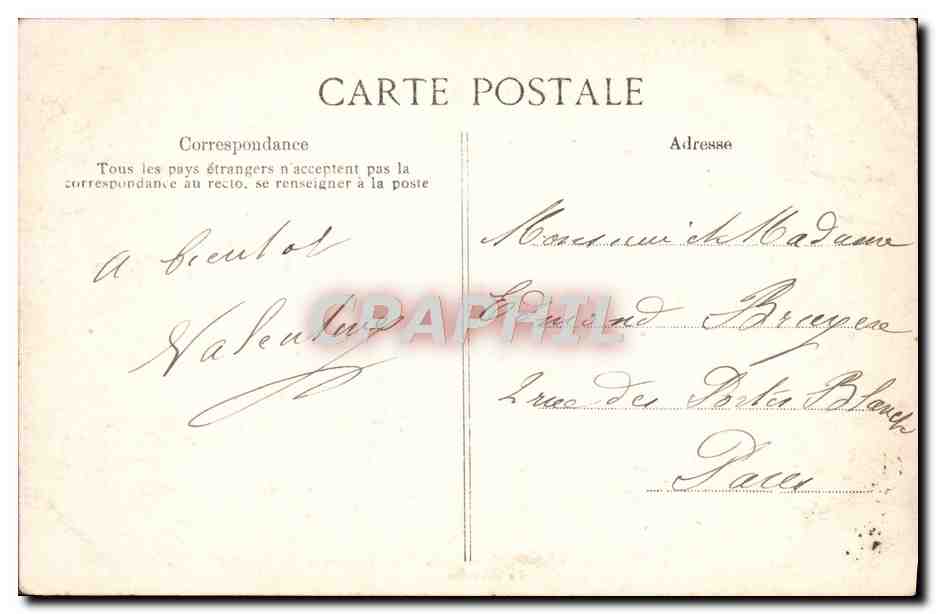 CARTE POSTALE
Correspondance
Tous les pays étrangers n'acceptent pas la
correspondance au recto, se renseigner à la poste
a bientot
Valentine
Adresse
Monsieur et Madame
Edmond Bruyere
2 rue des Portes Blanch
Paris
CPAPHIL